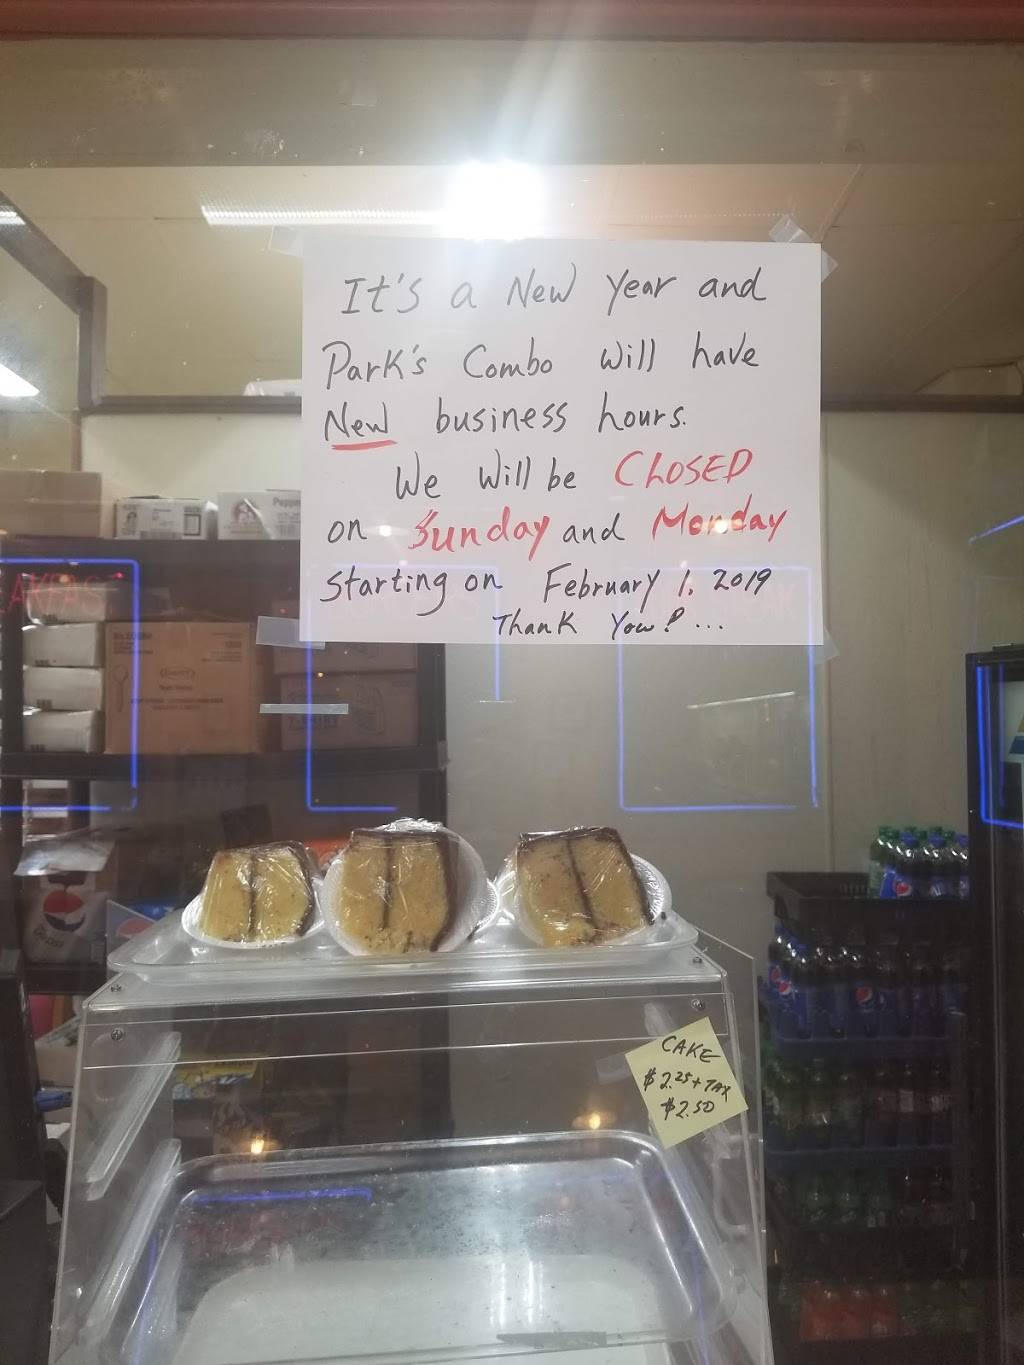 It's a New Year and
Park's Combo will have
New business hours.
We will be CLOSED
on Sunday and Monday
starting on February 1, 2019
Thank You! ...
CAKE
$2.25 + TAX
$2.50